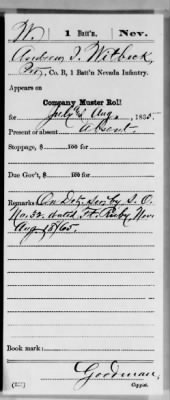 W. 1 Batt'n. Nev.
Andrew J. Witbeck
Pvt., Co. B, 1 Batt'n Nevada Infantry.
Appears on
Company Muster Roll
for July & Aug., 1865.
Present or absent Absent
Stoppage, $ 100 for
Due Gov't, $ 100 for
Remarks: On Det. Serv. by S. O.
No. 32. dated Ft. Ruby, Nev.
Aug 18/65.
Book mark:
Goodman
Copyist.